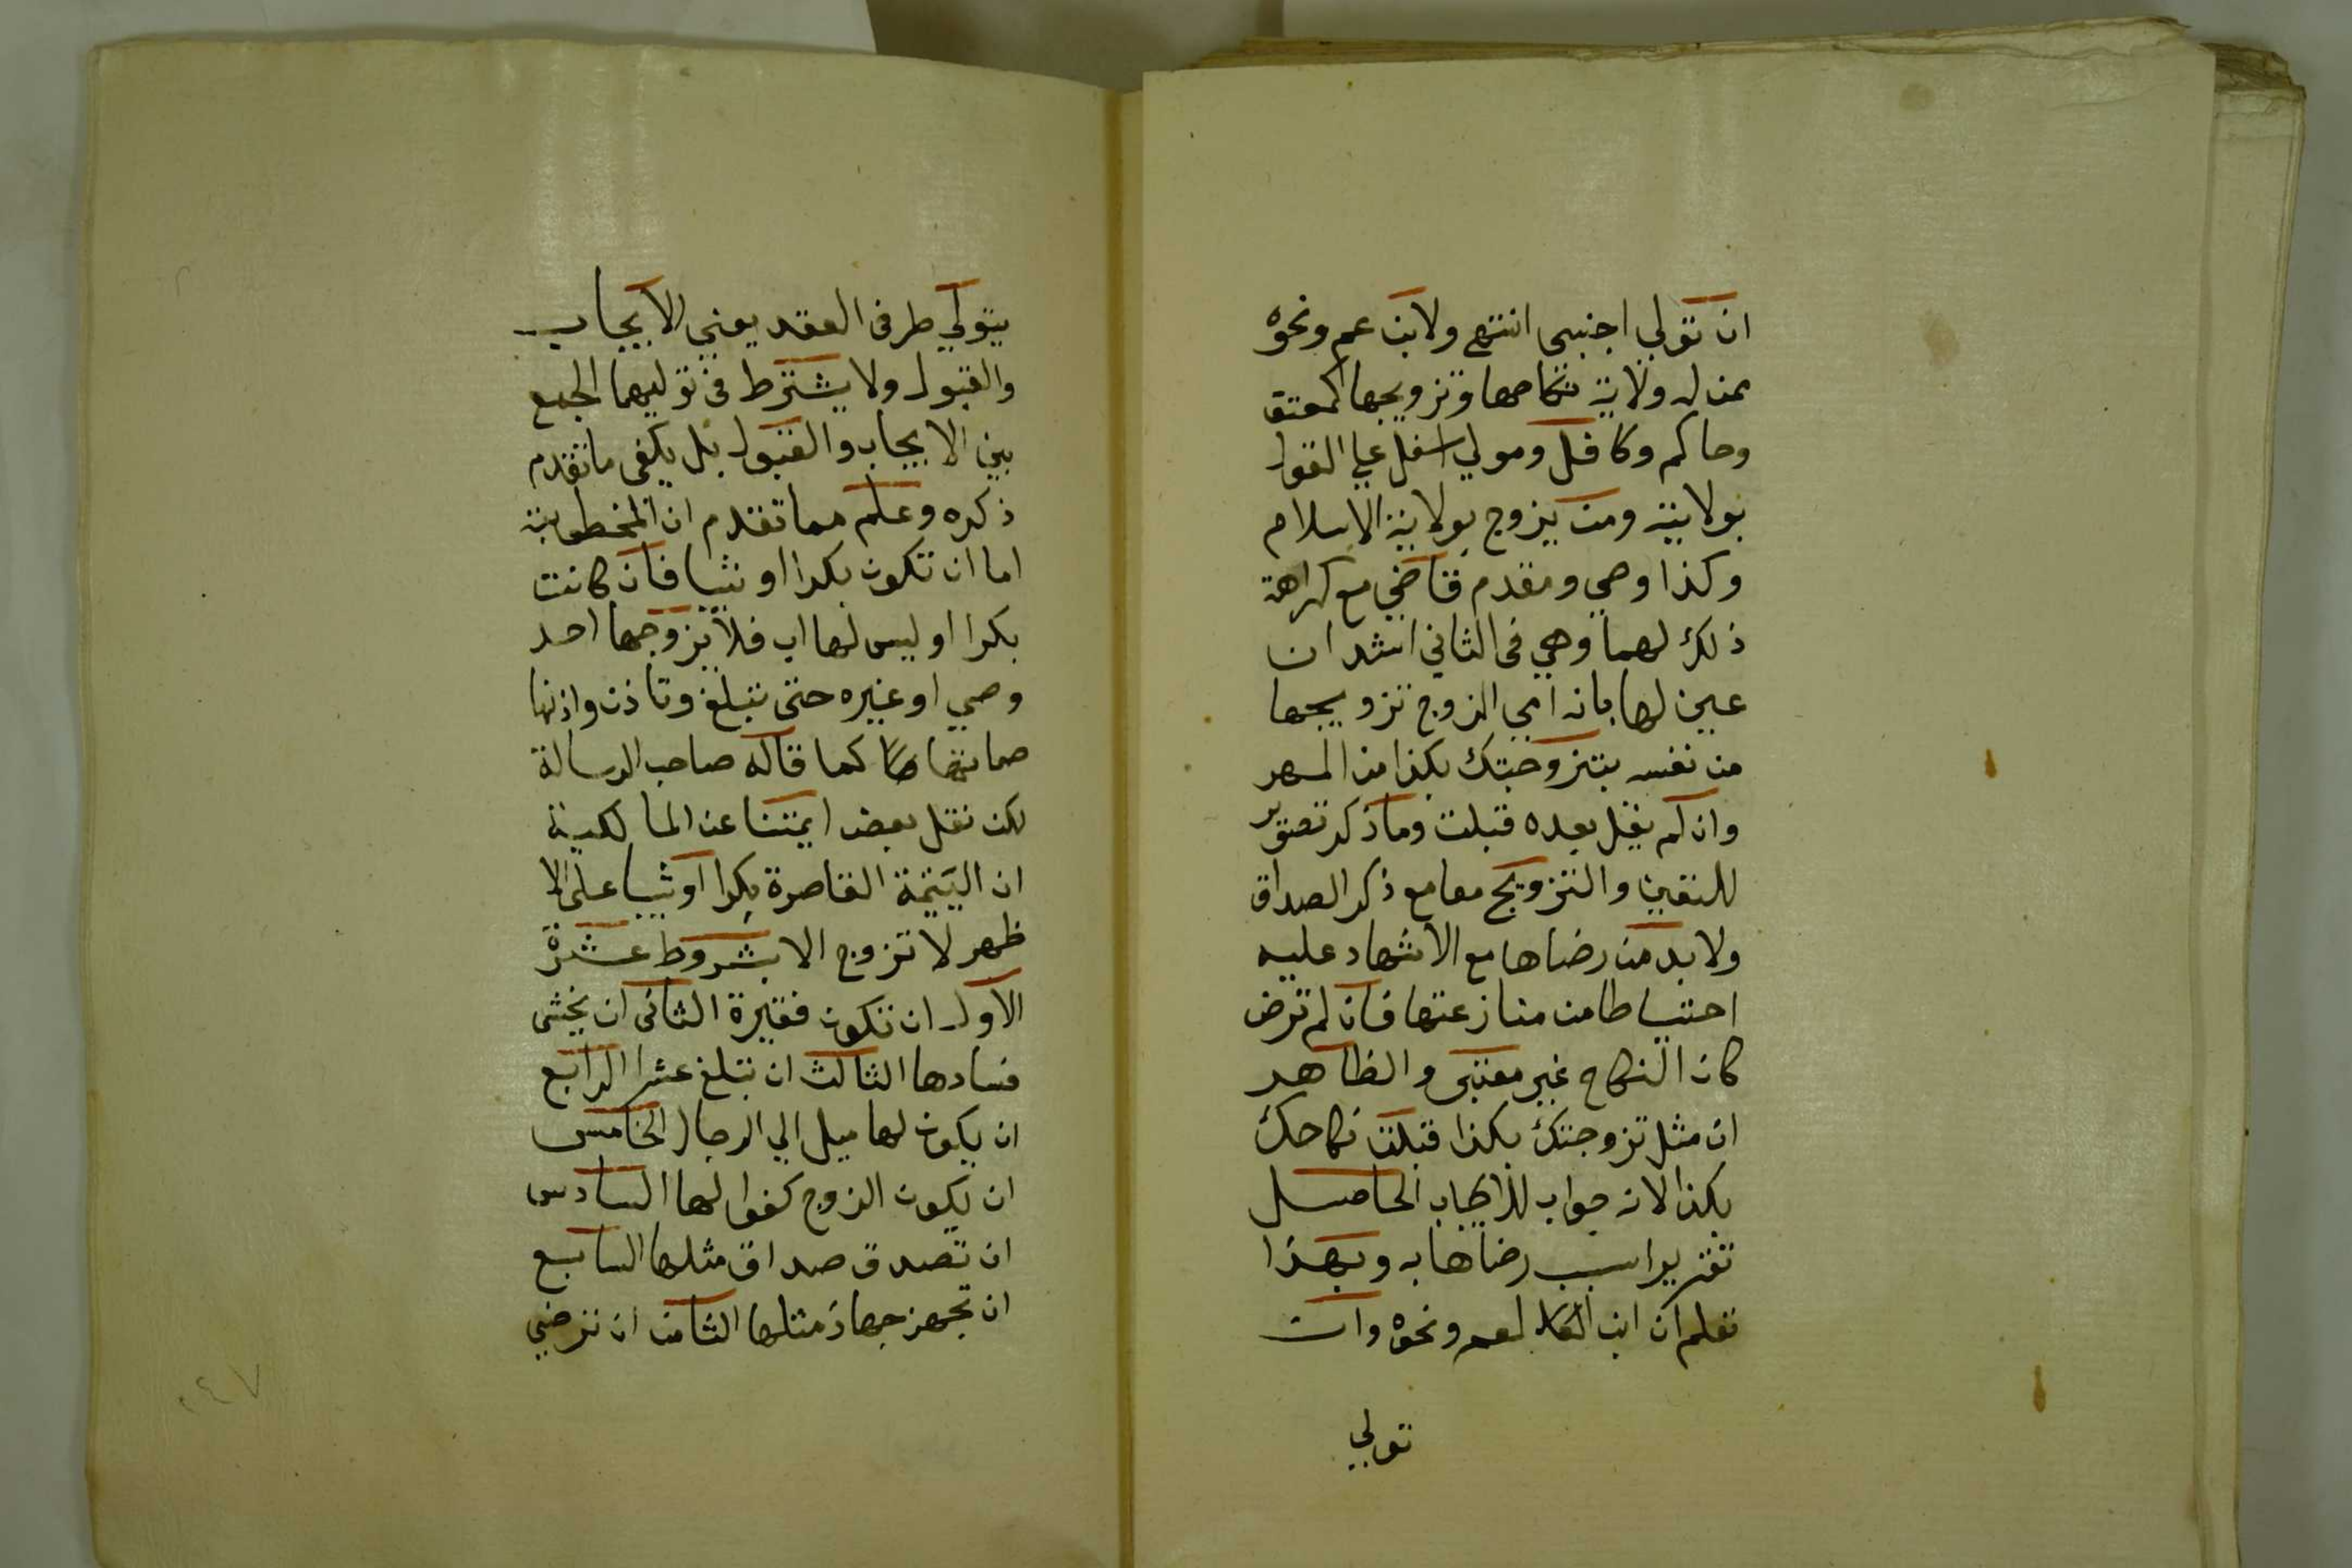 ان تولي اجنبي انتهي ولابن عم ونحوه
ممن له ولاية نكاحها وتزويجها كمعتق
وحاكم وكافل ومولي اسفل علي القول
بولايته ومن يزوج بولاية الاسلام
وكذا وصي ومقدم قاضي مع كراهة
ذلك لهما وهي في الثاني اشد ان
عين لها بانه اي الزوج تزويجها
من نفسه بتزوجتك بكذا من المهر
وان لم يقل بعده قبلت وما ذكر تصوير
للتعيين والتزويج معا مع ذكر الصداق
ولا بد من رضاها مع الاشهاد عليه
احتياطا من منازعتها فان لم ترض
كان النكاح غير معتبر والظاهر
ان مثل تزوجتك بكذا قبلت نكاحك
بكذا لانه جواب للايجاب الحاصل
تقديرا سبب رضاها به وبهذا
تعلم ان ابن العم ونحوه وان
تولي
يتولي طرفي العقد يعني الايجاب
والقبول ولا يشترط في توليهما الجمع
بين الايجاب والقبول بل يكفي ما تقدم
ذكره وعلم مما تقدم ان المخطوبة
اما ان تكون بكرا او ثيبا فان كانت
بكرا او ليس لها اب فلا يزوجها احد
وصي او غيره حتى تبلغ وتاذن واذنها
صماتها كما قاله صاحب الرسالة
لكن نقل بعض ايمتنا عن المالكية
ان اليتيمة القاصرة بكرا او ثيبا على الا
ظهر لا تزوج الا بشروط عشرة
الاول ان تكون فقيرة الثاني ان يخشى
فسادها الثالث ان تبلغ عشرا الرابع
ان يكون لها ميل الي الرجال الخامس
ان يكون الزوج كفوا لها السادس
ان تصدق صداق مثلها السابع
ان تجهز جهاز مثلها الثامن ان ترضي
٢٤٧